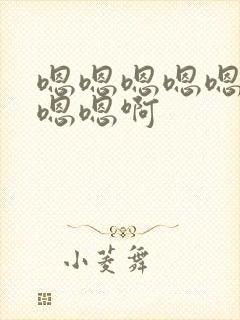 嗯嗯嗯嗯嗯
嗯嗯啊
小菱舞